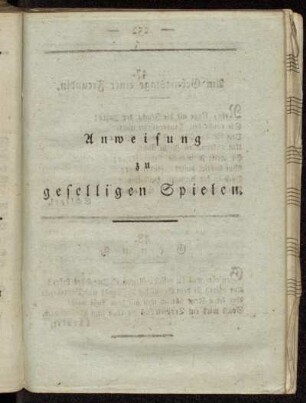 Anweisung
zu
geselligen Spielen.